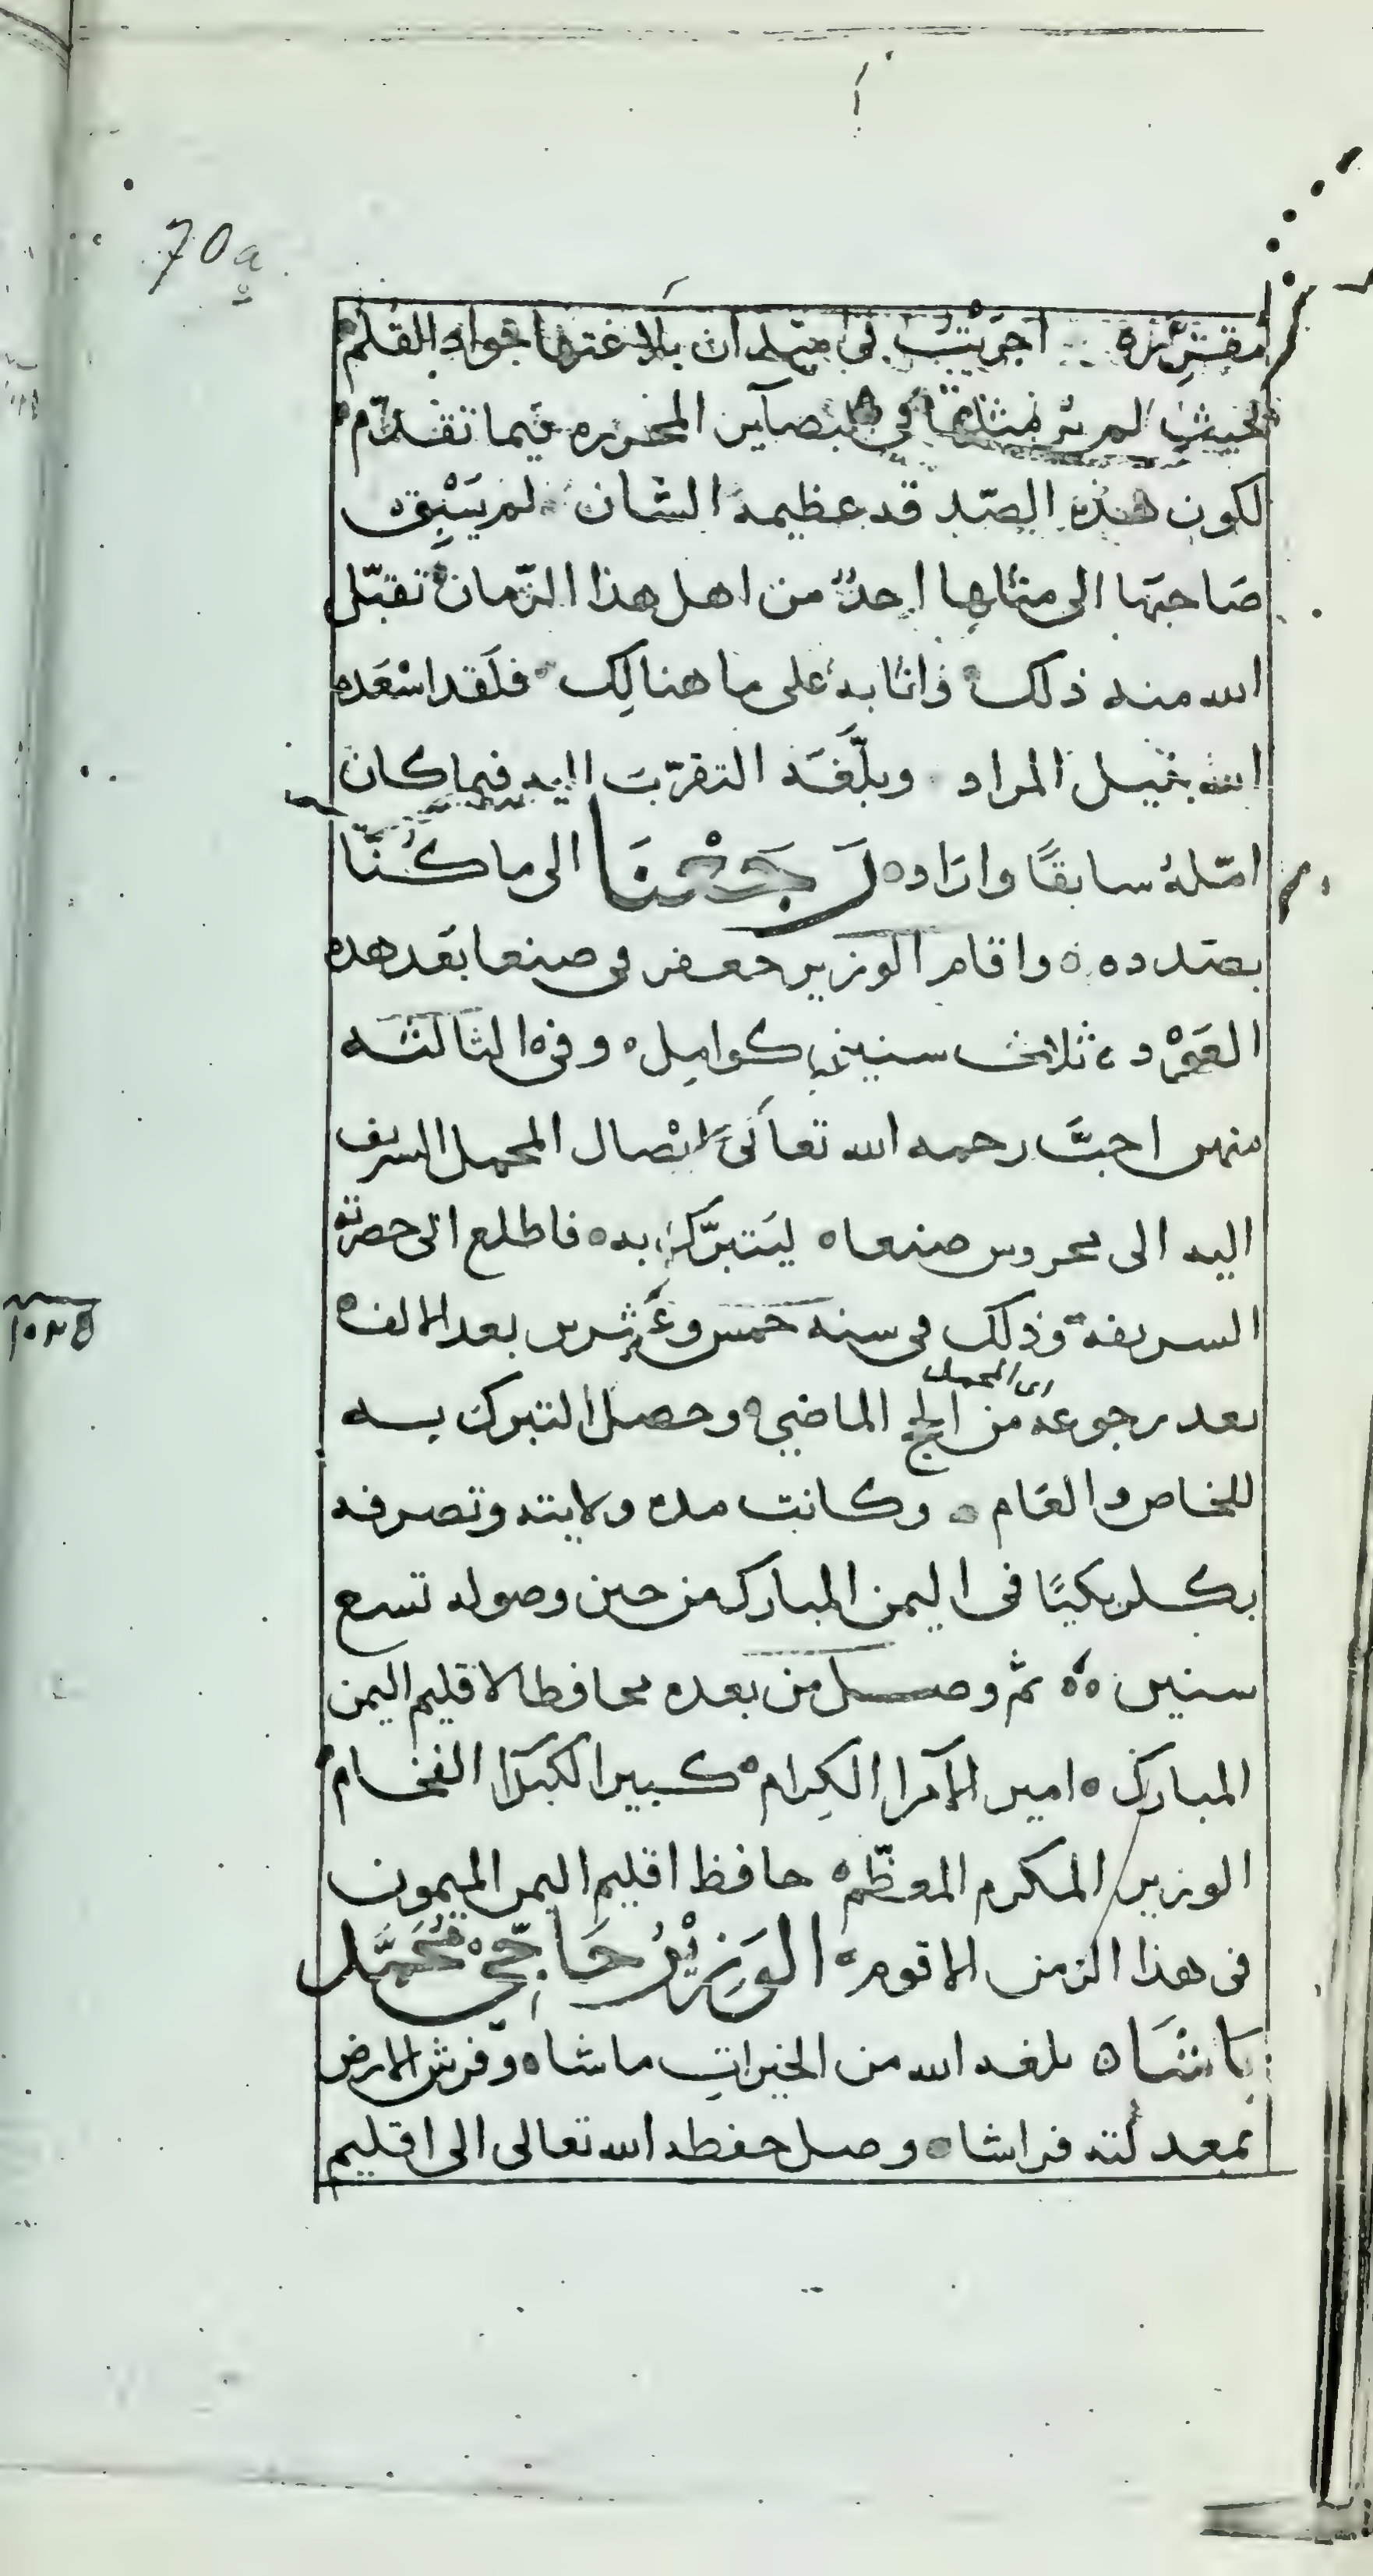 70a
مقشره اجريت لي ميدان بلاغتها جواد القلم
بحيث لم ير مثلها في البصاير المحرره فيما تقدم
لكون هذه الصد قد عظيمة الشان لم يسبق
صاحبها الى مثلها احد من اهل هذا الزمان تقبل
الله منه ذلك واثابه على ما هنالك فلقد اسعده
الله بنيل المراد وبلغه التقرب اليه فيما كان
امله سابقا واراده رجعنا الى ما كنا
بصدده واقام الوزير جعفر في صنعا بعد هده
العوده ثلاث سنين كوامل وفي الثالثه
منهن احب رحمه الله تعالى اتصال المحمل السريف
اليه الى محروس صنعاه ليتبرك به فاطلع الى حضرته
السريفة وذلك في سنه خمس وعشرين بعد الالف
١٠٢٥
اى المحمل
بعد رجوعه من الحج الماضي وحصل التبرك به
للخاص والعام وكانت مده ولايته وتصرفه
بكلربكيا في اليمن المبارك من حين وصوله تسع
سنين ثم وصل من بعده محافظا لاقليم اليمن
المبارك امير الامرا الكرام كبير الكبرا الفخام
الوزير المكرم المعظم حافظ اقليم اليمن الميمون
في هذا الزمن الاقوم الوزير حاجي محمد
باشاه بلغه الله من الخيرات ماشاه وفرش الارض
بمعدلته فراشاه وصل حفظه الله تعالى الى اقليم